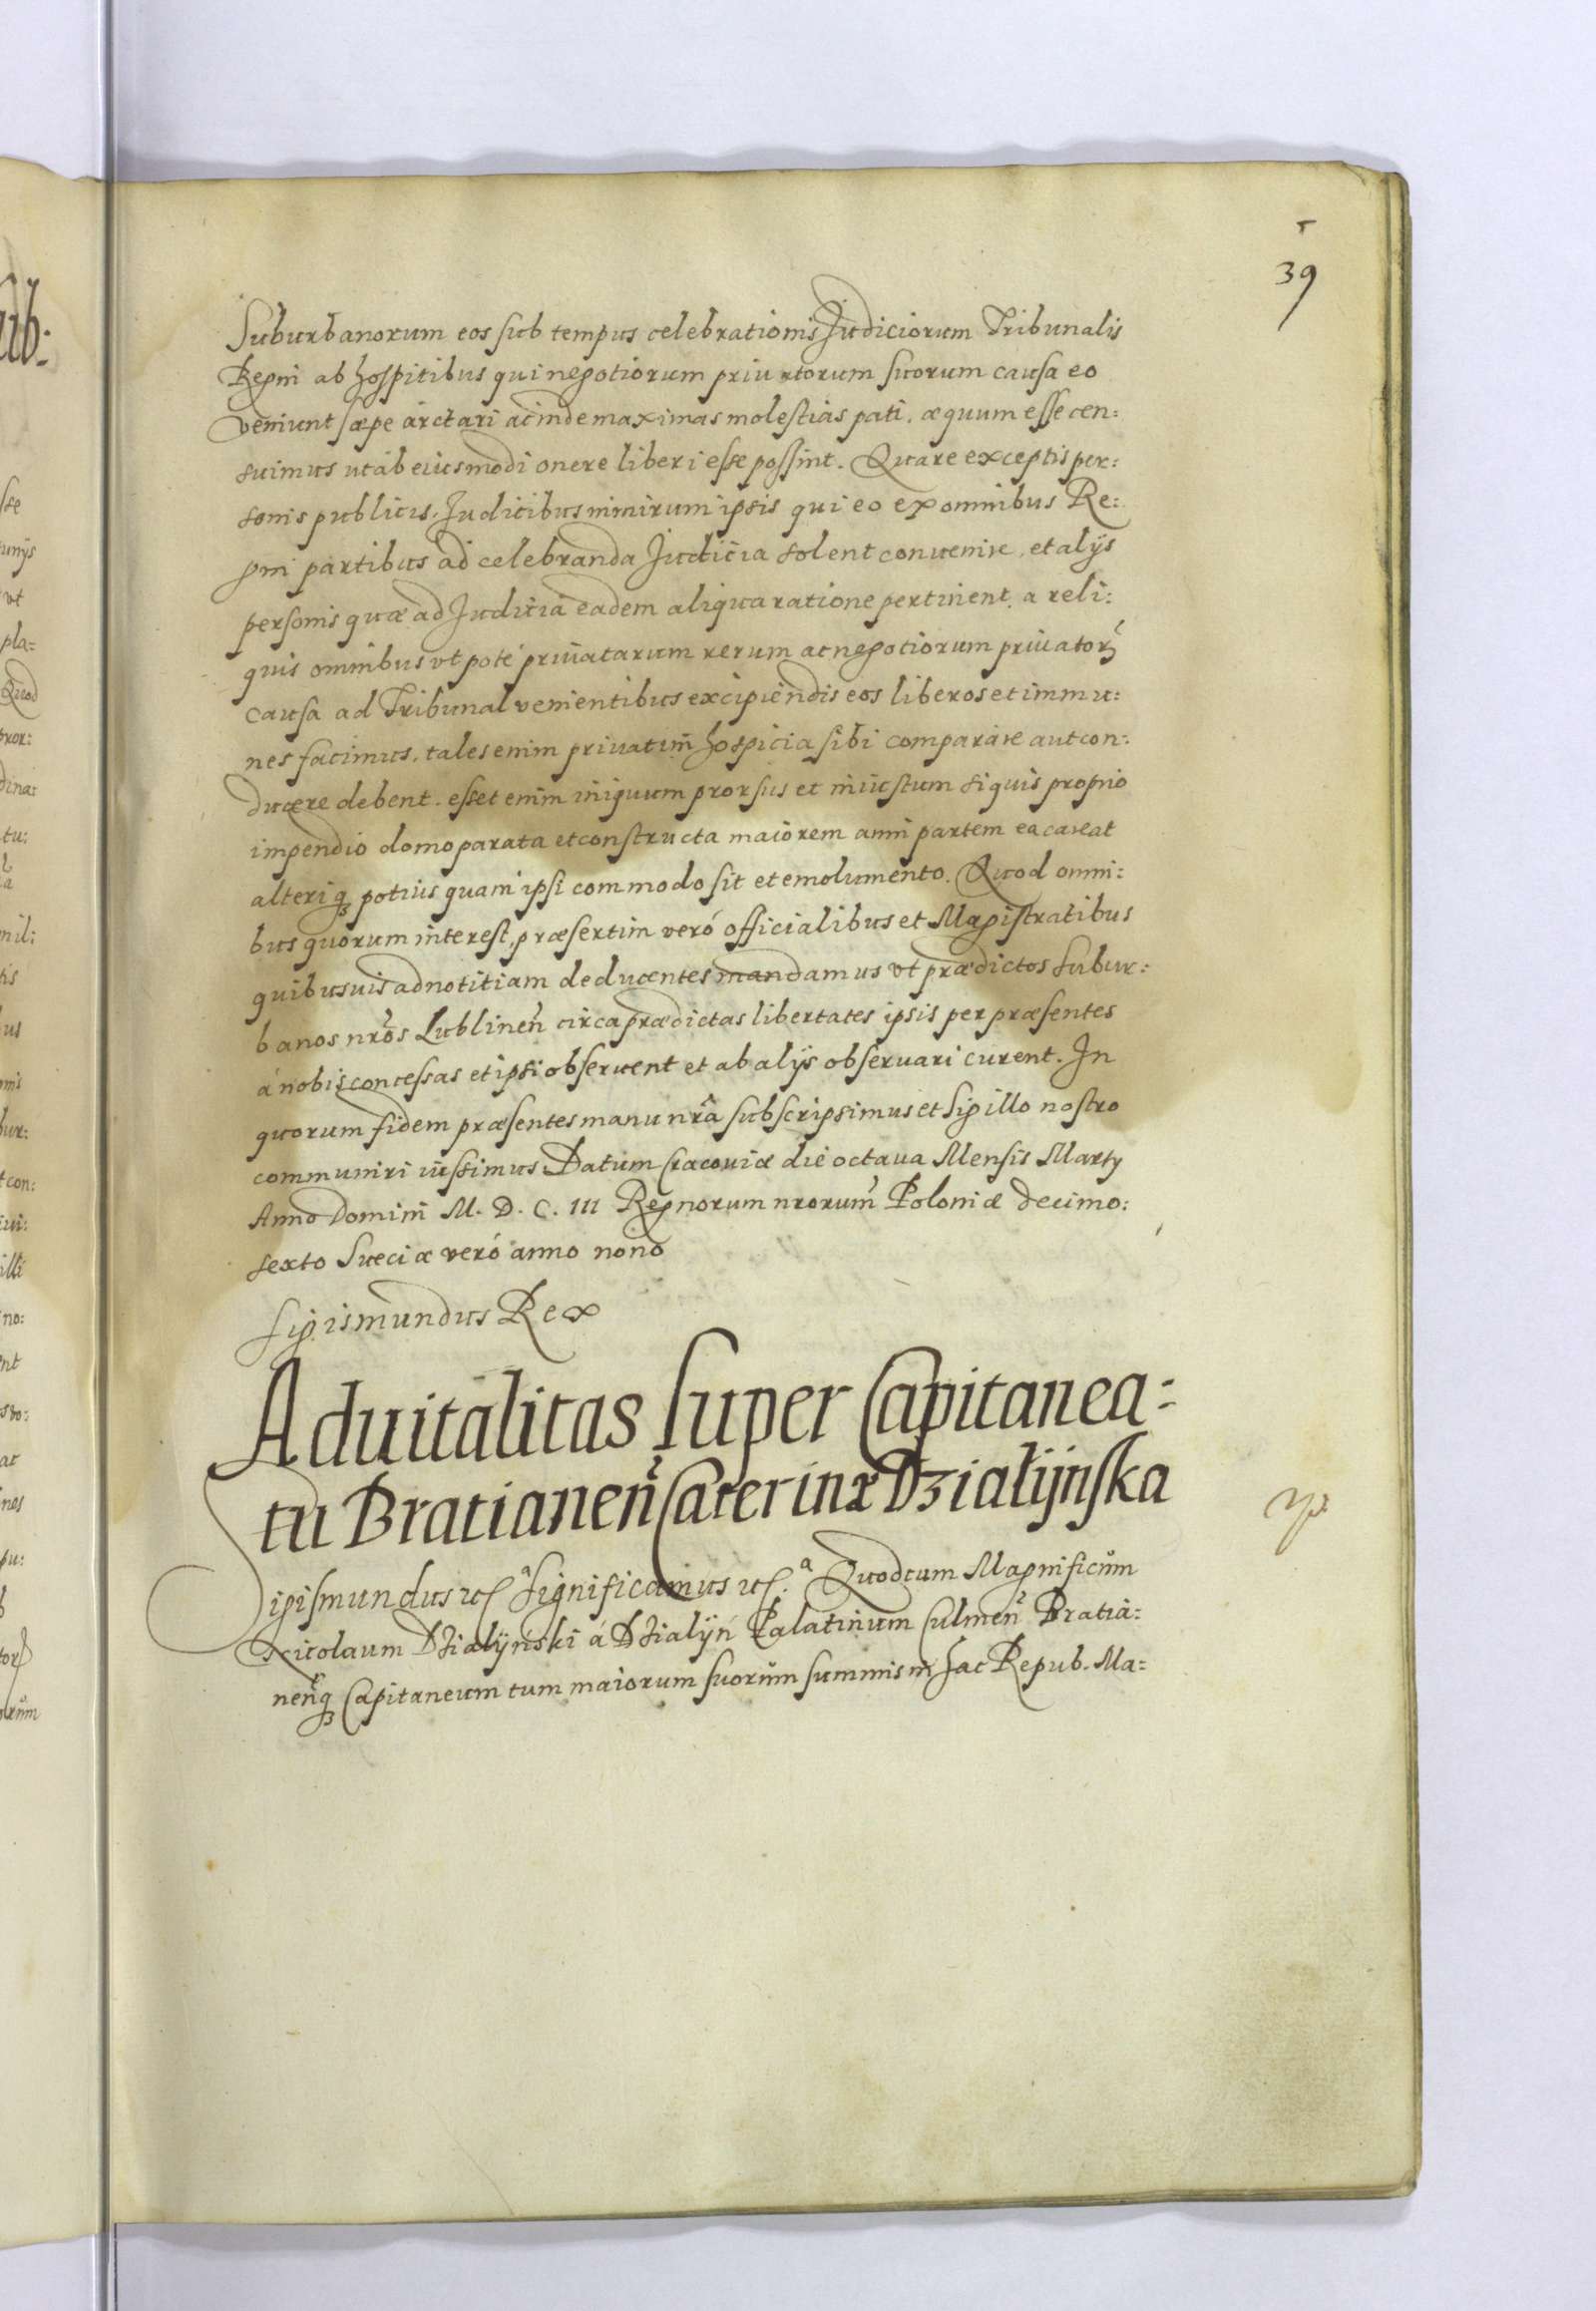 39
Suburbanorum eos sub tempus celebrationis Judiciorum Tribunalis
Regni ab hospitibus qui negotiorum priuatorum suorum causa eo
veniunt sæpe arctari ac inde maximas molestias pati. æquum esse cen:
suimus ut ab eiusmodi onere liberi esse possint. Quare exceptis per:
sonis publicis. Judicibus nimirum ipsis qui eo ex omnibus Re:
gni partibus ad celebranda Judicia solent conuenire, et alijs
personis quæ ad Judicia eadem aliqua ratione pertinent. a reli:
quis omnibus vt pote priuatarum rerum ac negotiorum priuatorꝫ
causa ad Tribunal venientibus excipiendis eos liberos et immu:
nes facimus. tales enim priuatim hospicia sibi comparare aut con:
ducere debent. esset enim iniquum prorsus et iniustum si quis proprio
impendio domo parata et constructa maiorem anni partem ea careat
alteriqꝫ potius quam ipsi commodo sit et emolumento. Quod omni:
bus quorum interest, præsertim veró officialibus et Magistratibus
quibusuis ad notitiam deducentes mandamus vt prædictos subur:
banos nros Lublinen circa prædictas libertates ipsis per præsentes
á nobis concessas et ipsi obseruent et ab alijs obseruari curent. In
quorum fidem præsentes manu nrâ subscripsimus et Sigillo nostro
communiri iussimus Datum Cracouiæ die octaua Mensis Marty
Anno Domini M. D. C. III Regnorum nrorum Poloniæ decimo:
sexto Sueciæ veró anno nono
Sigismundus Rex
Aduitalitas super Capitanea:
tu Bratianen Caterinæ Dzialijnska
Sigismundus etc Significamus etc. Quod cum Magnificum
Nicolaum Dzialyński á Dzialyń Palatinum Culmen Bratia:
nenqꝫ Capitaneum tum maiorum suorum summis in hac Repub. Ma: